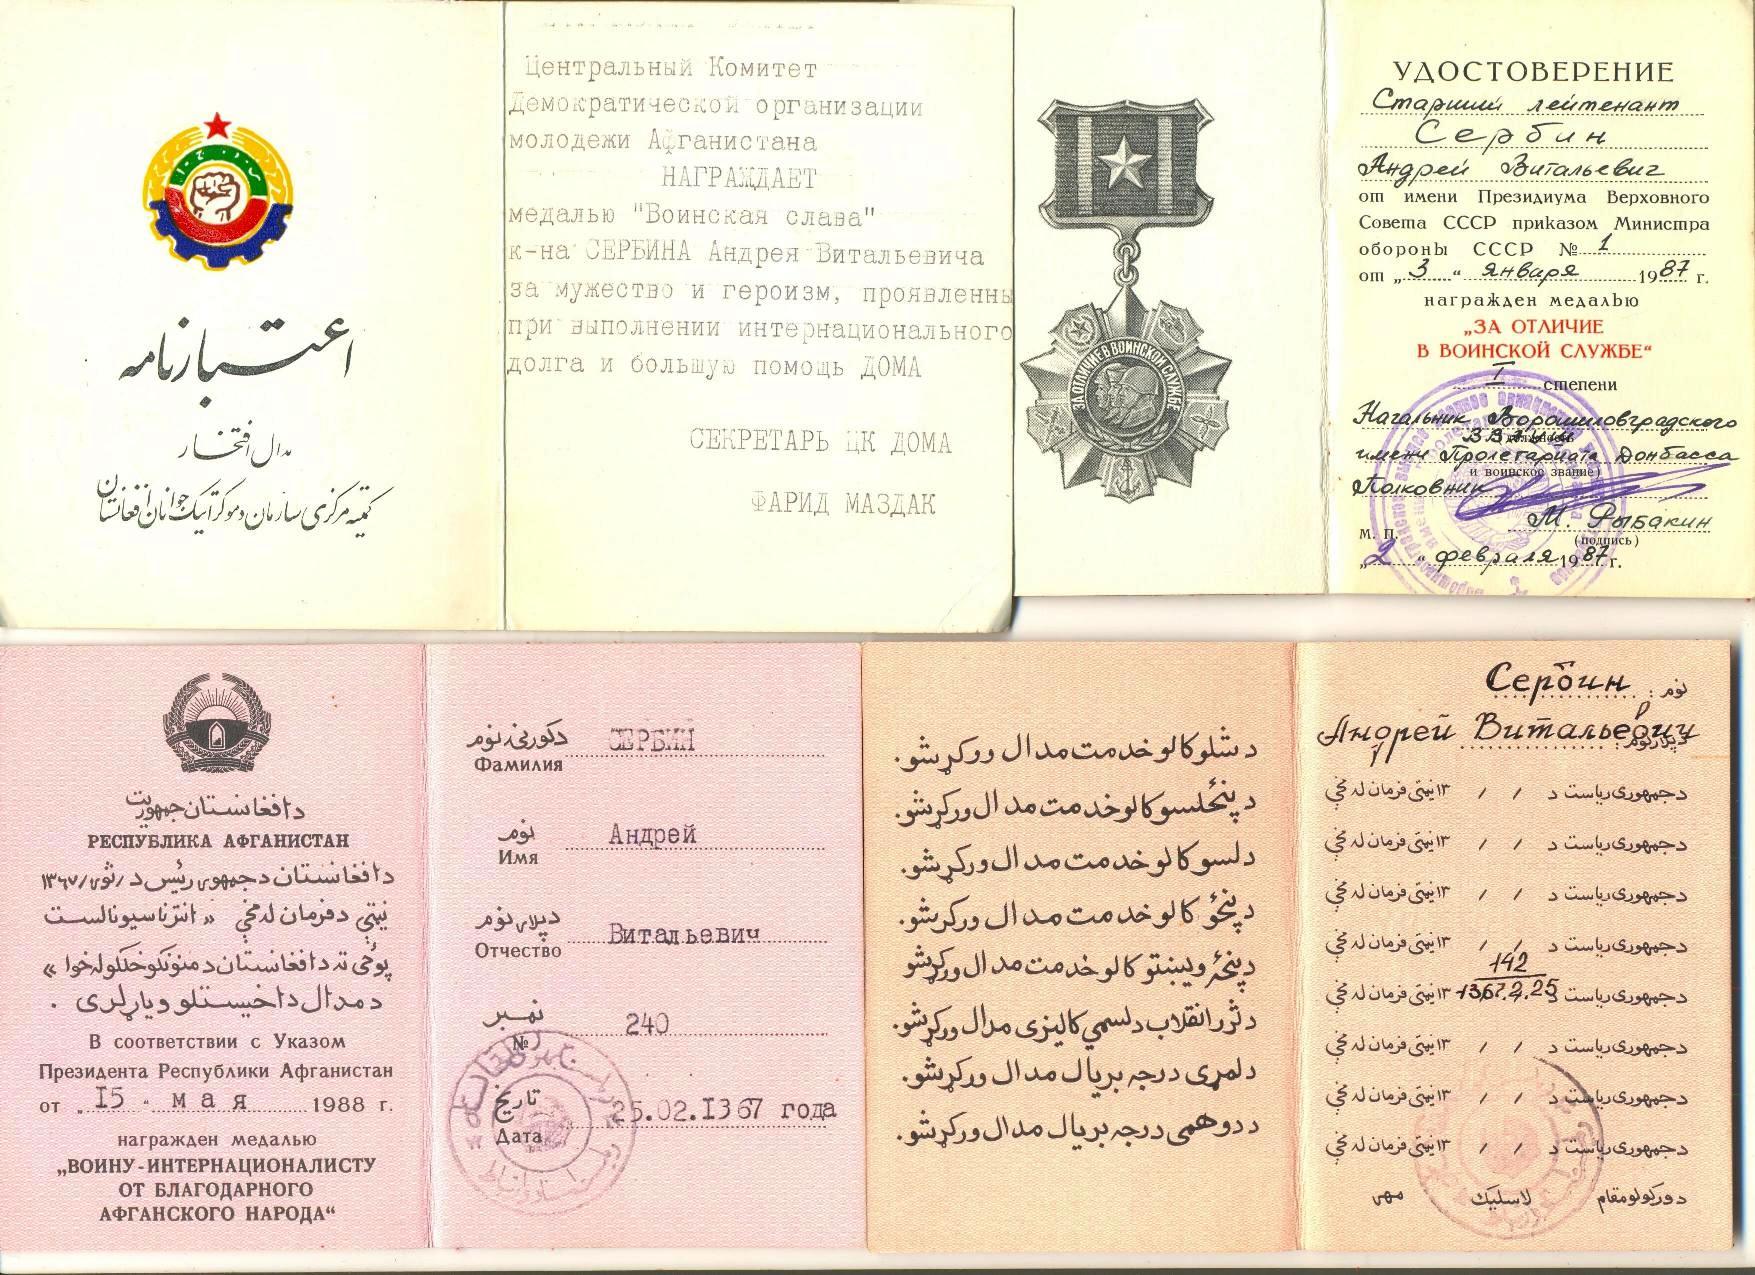 اعتبارنامه
مدال افتخار
کمیته مرکزی سازمان دموکراتیک جوانان افغانستان
Центральный Комитет
Демократической организации
молодежи Афганистана
НАГРАЖДАЕТ
медалью "Воинская слава"
к-на СЕРБИНА Андрея Витальевича
за мужество и героизм, проявленны
при выполнении интернационального
долга и большую помощь ДОМА
СЕКРЕТАРЬ ЦК ДОМА
ФАРИД МАЗДАК
ЗА ОТЛИЧИЕ В ВОИНСКОЙ СЛУЖБЕ
УДОСТОВЕРЕНИЕ
Старший лейтенант
Сербин
Андрей Витальевич
от имени Президиума Верховного
Совета СССР приказом Министра
обороны СССР № 1
от „3“ января 1987 г.
награжден медалью
„ЗА ОТЛИЧИЕ
В ВОИНСКОЙ СЛУЖБЕ“
I степени
Начальник Ворошиловградского
имени Пролетариата Донбасса
и воинское звание)
Полковник
М. Рыбакин
М. П.
(подпись)
„2“ февраля 1987 г.
دافغانستان جمهوریت
РЕСПУБЛИКА АФГАНИСТАН
دافغانستان دجمهوری رئیس د / ثور / ۱۳۶۷
نیټې دفرمان له مخې « انترناسیونالست
پوځی ته دافغانستان دمنونکو خلکو له خوا »
دمدال داخیستلو ویاړلری .
В соответствии с Указом
Президента Республики Афганистан
от „15“ мая 1988 г.
награжден медалью
„ВОИНУ-ИНТЕРНАЦИОНАЛИСТУ
ОТ БЛАГОДАРНОГО
АФГАНСКОГО НАРОДА“
دکورنۍ نوم СЕРБИН
Фамилия
نوم Андрей
Имя
دپلار نوم Витальевич
Отчество
نمبر 240
№
تاریخ 25.02.1367 года
Дата
دشلو کالو خدمت مدال ورکړشو.
دپنځلسو کالو خدمت مدال ورکړشو.
دلسو کالو خدمت مدال ورکړشو.
دپنځو کالو خدمت مدال ورکړشو.
دپنځه ویشتو کالو خدمت مدال ورکړشو
دثور انقلاب دلسمې کالیزی مدال ورکړشو.
دلمړی درجه بریال مدال ورکړشو.
ددوهمی درجه بریال مدال ورکړشو.
نوم : Сербин
دپلار نوم : Андрей Витальевич
دجمهوری ریاست د / / ۱۳ نیټې فرمان له مخې
دجمهوری ریاست د / / ۱۳ نیټې فرمان له مخې
دجمهوری ریاست د / / ۱۳ نیټې فرمان له مخې
دجمهوری ریاست د / / ۱۳ نیټې فرمان له مخې
142
دجمهوری ریاست د 1367.2.25 ۱۳ نیټې فرمان له مخې
دجمهوری ریاست د / / ۱۳ نیټې فرمان له مخې
دجمهوری ریاست د / / ۱۳ نیټې فرمان له مخې
دجمهوری ریاست د / / ۱۳ نیټې فرمان له مخې
دورکولو مقام لاسلیک مهر